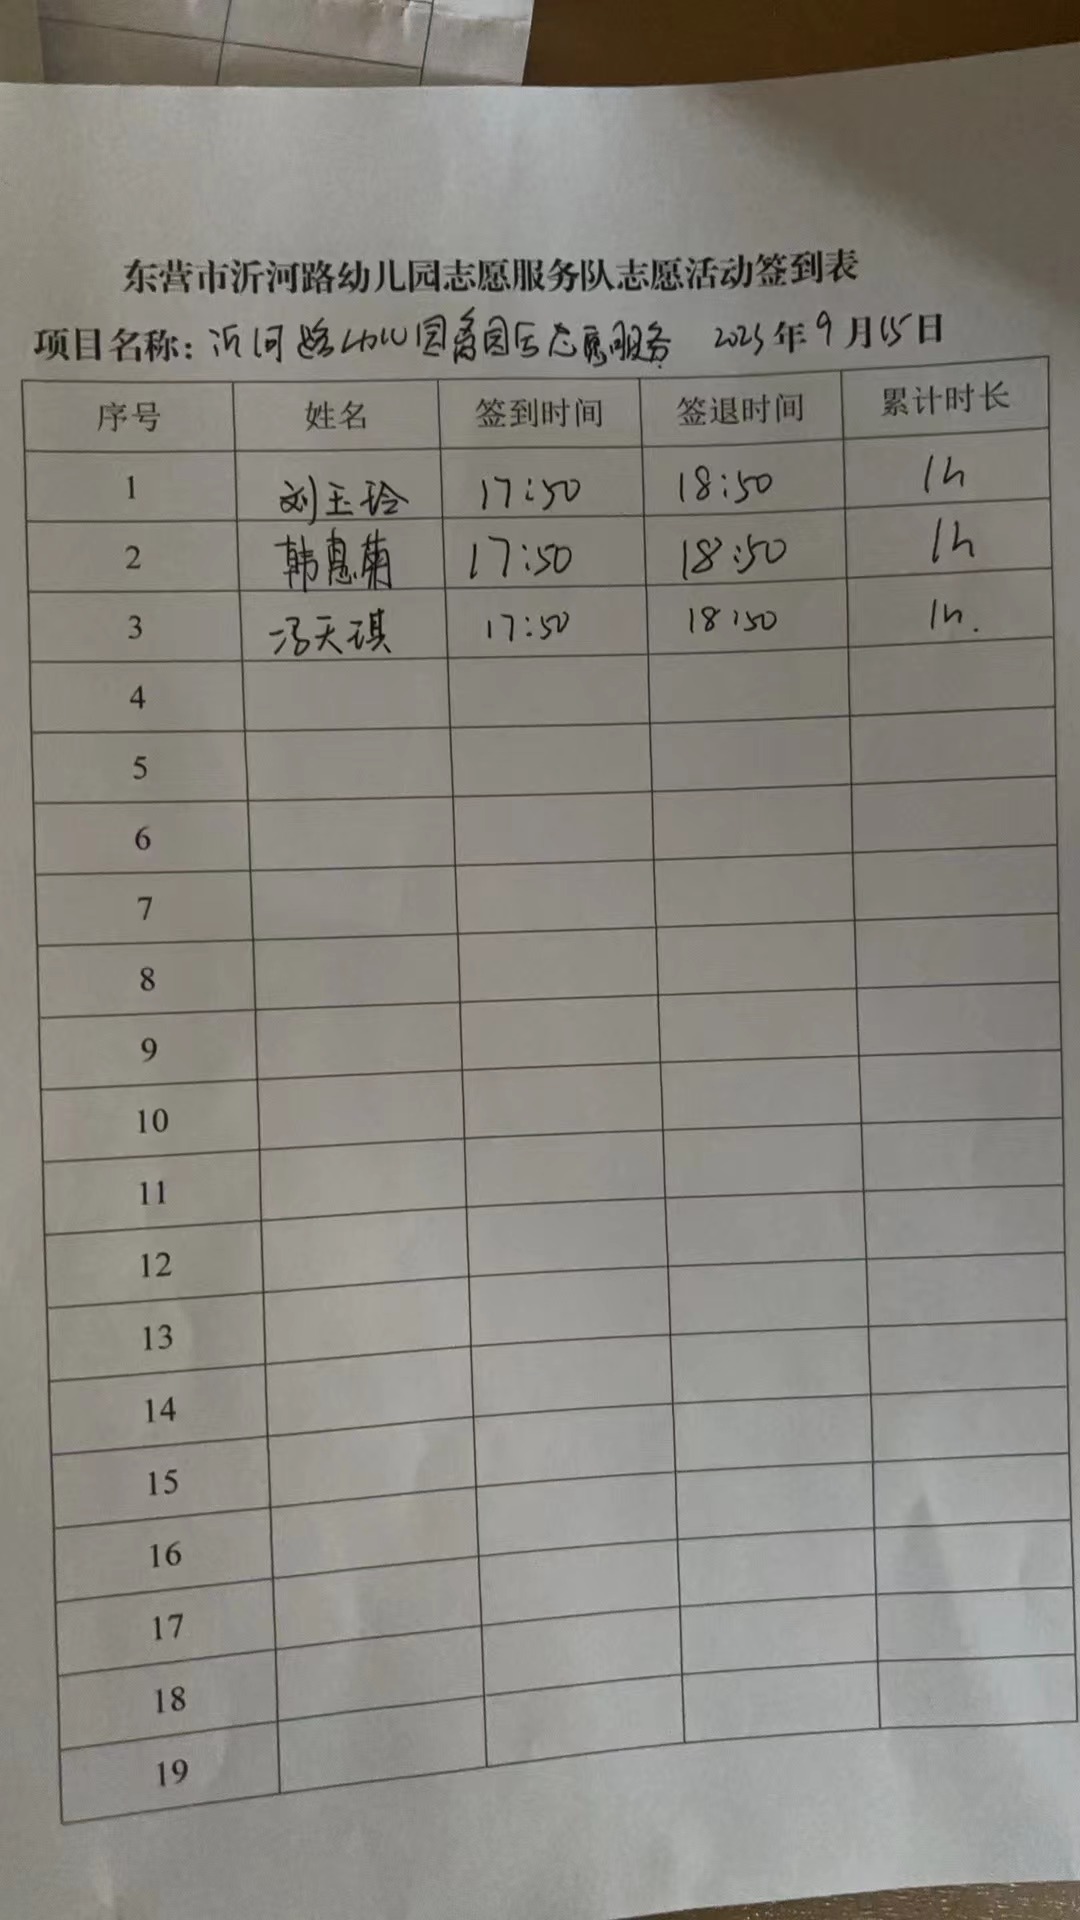 东营市沂河路幼儿园志愿服务队志愿活动签到表
项目名称: 沂河路幼儿园离园后志愿服务 2025年9月15日
序号 姓名 签到时间 签退时间 累计时长
1 刘玉玲 17:50 18:50 1h
2 韩惠菊 17:50 18:50 1h
3 冯天琪 17:50 18:50 1h.
4
5
6
7
8
9
10
11
12
13
14
15
16
17
18
19